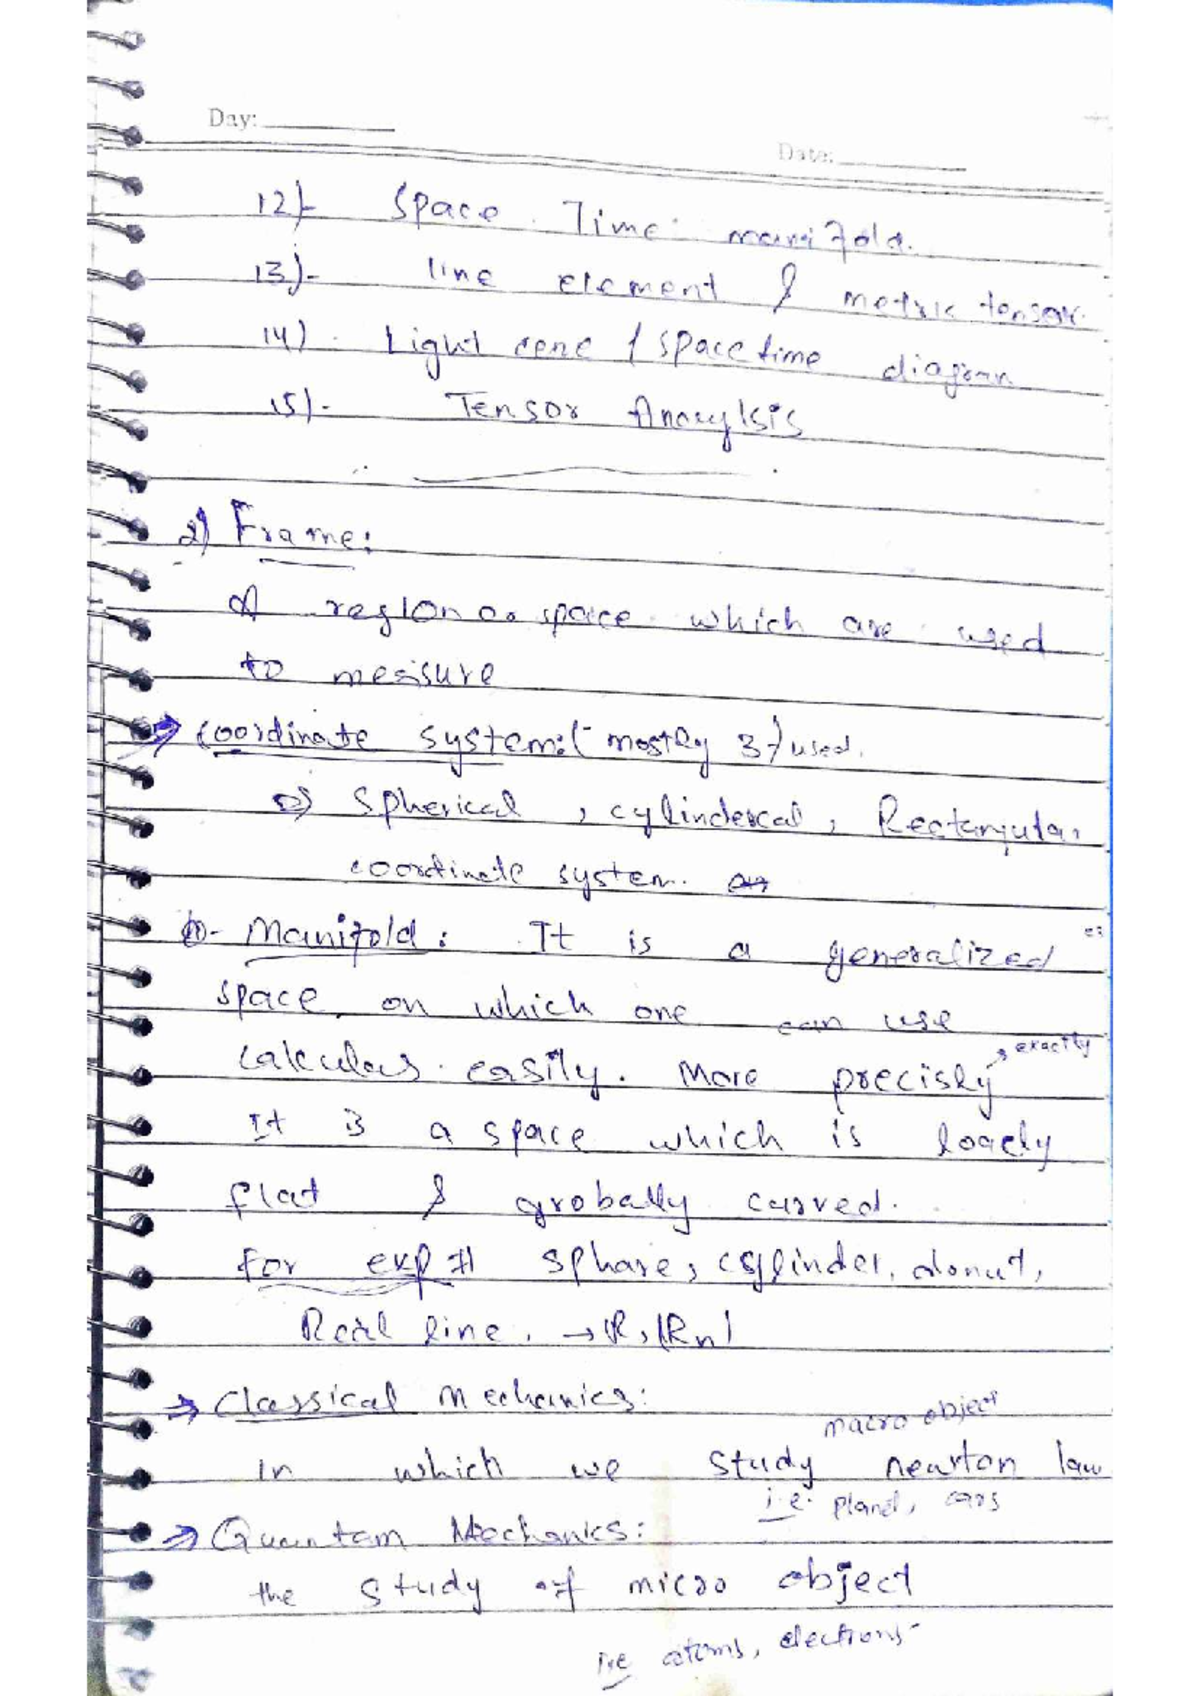 Day:
Date:
12)- Space Time manifold.
13)- line element & metric tensor.
14) Light cone / space time diagram
15)- Tensor Anaylsis
2) Frame:
A region or space which are used
to measure
⇒ Coordinate system:(mostly 3) used.
Spherical, cylindercal, Rectangular
coordinate system.
Manifold: It is a generalized
space on which one can use
calculas easily. More precisly → exactly
It is a space which is loacly
flat & grobally curved.
For exp# sphare, cylinder, donut,
Real line. → R, Rn)
⇒ Classical Mechanics:
macro object
In which we study newton law
i.e. pland, cars
⇒ Quantam Mechanks:
the study of micro object
i.e atoms, electrons